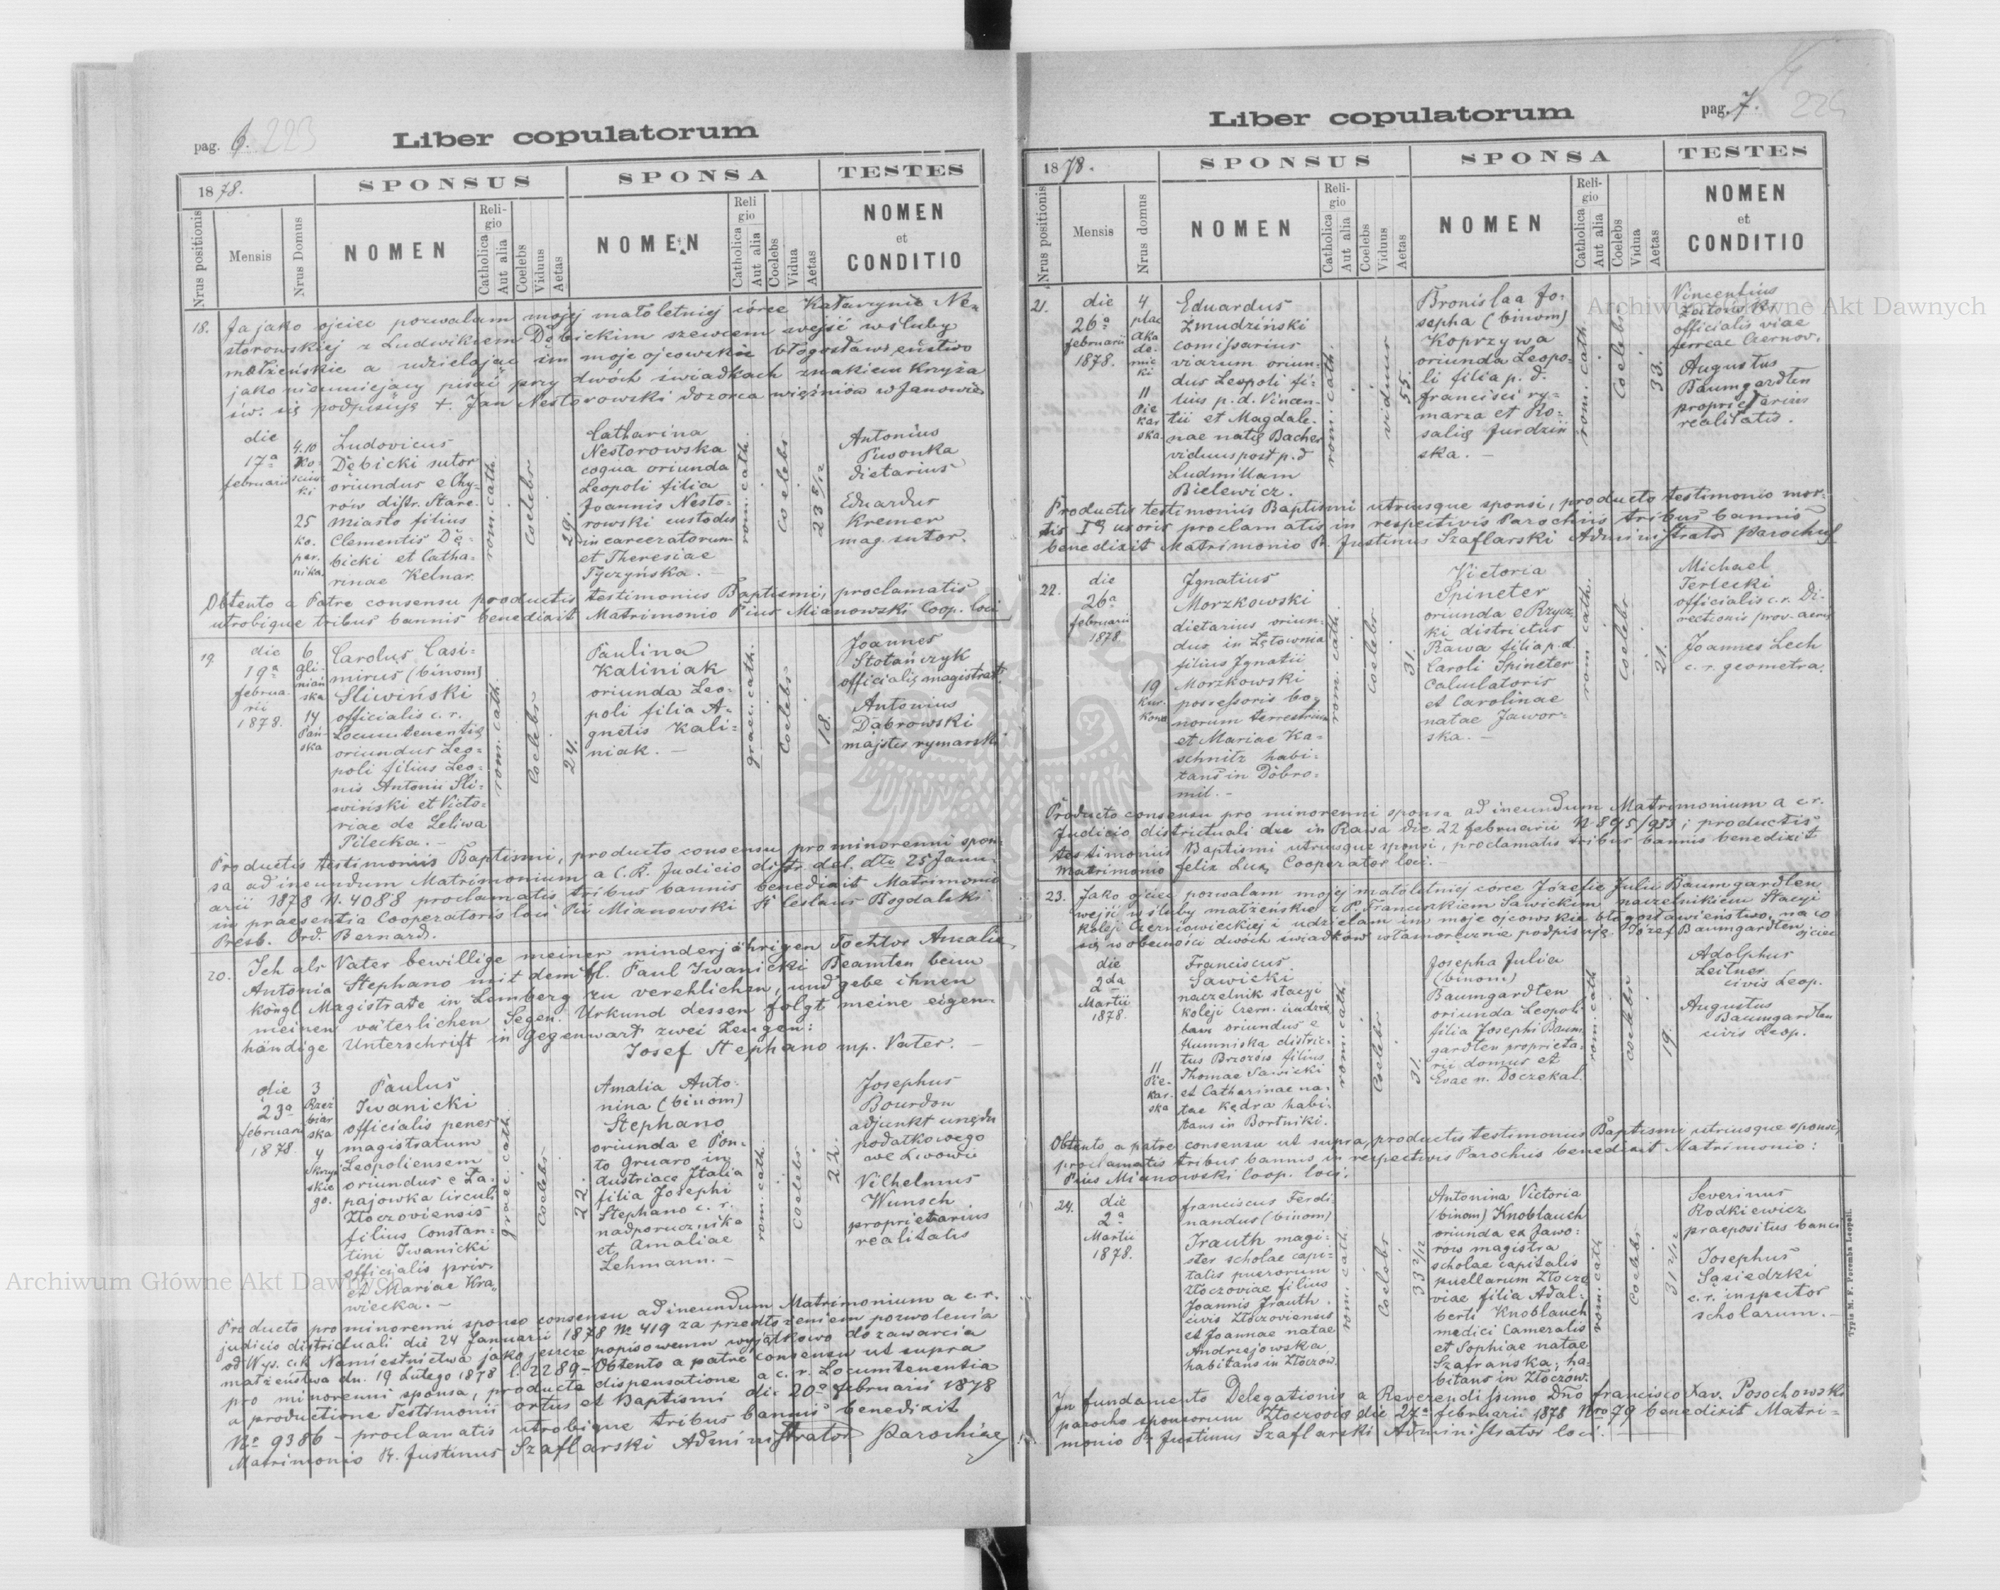 pag. 6. 223
Liber copulatorum
1878.
SPONSUS
SPONSA
TESTES
Nrus positionis
Mensis
Nrus Domus
NOMEN
Religio
Catholica
Aut alia
Coelebs
Viduus
Aetas
NOMEN
Religio
Catholica
Aut alia
Coelebs
Vidua
Aetas
NOMEN
et
CONDITIO
18. Ja jako ojciec pozwalam mojej małoletniej córce Katarzynie Ne-
storowskiej z Ludwikiem Dębickim szewcem wejść w śluby
małżeńskie a udzielając im moje ojcowskie błogosławieństwo
jako nieumiejący pisać przy dwóch świadkach znakiem Krzyża
św. się podpisuję +. Jan Nestorowski dozorca więźniów w Janowie
die
17a
februarii
4.10
Ko-
sciusz-
ki
25
Ko-
per-
nika
Ludovicus
Dębicki sutor
oriundus e Chy-
rów distr. Stare
miasto filius
Clementis Dę-
bicki et Catha-
rinae Kelnar.
rom. cath.
Coelebs
29.
Catharina
Nestorowska
coqua oriunda
Leopoli filia
Joannis Nesto-
rowski custodis
incarceratorum
et Theresiae
Tyczyńska. –
rom. cath.
Coelebs
23 5/12
Antonius
Piwonka
dietarius
Eduardus
Kremer
mag. sutor.
Obtento a Patre consensu productis testimoniis Baptismi, proclamatis
utrobique tribus bannis benedixit Matrimonio Pius Mianowski Coop. loci
19
die
19a
februa-
rii
1878.
6
gli-
niań-
ska
14
Pań-
ska
Carolus Casi-
mirus (binom)
Śliwiński
officialis c. r.
Locumtenentię
oriundus Leo-
poli filius Leo-
nis Antonii Śli-
wiński et Victo-
riae de Leliwa
Pilecka. –
rom. cath.
Coelebs
24.
Paulina
Kaliniak
oriunda Leo-
poli filia A-
gnetis Kali-
niak. –
graec. cath.
Coelebs
18.
Joannes
Stotańczyk
officialis magistrat.
Antonius
Dąbrowski
majster rymarski
Productis testimoniis Baptismi, producto consensu pro minorenni spon-
sa ad ineundum Matrimonium a C.R. Judicio distr. del. dto 25 Janu-
arii 1878 N. 4088 proclamatis tribus bannis benedixit Matrimonio
in praesentia Cooperatoris loci Pii Mianowski P. Ceslaus Bogdalski
Presb. Ord. Bernard.
20. Ich als Vater bewillige meiner minderjährigen Tochter Amalie
Antonia Stephano mit dem H. Paul Iwanicki Beamten beim
köngl. Magistrate in Lemberg zu verehlichen, und gebe ihnen
meinen väterlichen Segen. Urkund dessen folgt meine eigen-
händige Unterschrift in Gegenwart zwei Zeugen:
Josef Stephano mp. Vater. –
die
23a
februarii
1878.
3
Rzeź
biar
ska
4
Skrzyń
skie
go.
Paulus
Iwanicki
officialis penes
magistratum
Leopoliensem
oriundus e Za-
pajowka Circuli
Złoczoviensis
filius Constan-
tini Iwanicki
officialis priv.
et Mariae Kra-
wiecka. –
graec. cath.
Coelebs
22.
Amalia Anto-
nina (binom)
Stephano
oriunda e Pon-
to Gruaro in
Austriace Italia
filia Josephi
Stephano c. r.
nadporucznika
et Amaliae
Lehmann. –
rom. cath.
Coelebs
22.
Josephus
Bourdon
adjunkt urzędu
podatkowego
we Lwowie
Vilhelmus
Wunsch
proprietarius
realitatis
Producto pro minorenni sponso consensu ad ineundum Matrimonium a c. r.
judicio districtuali die 24 Januarii 1878 No 419 za przedłożeniem pozwolenia
od Wys. c.k. Namiestnictwa jako jeszcze popisowemu wyjątkowo do zawarcia
małżeństwa dn. 19 Lutego 1878 l. 2289 – Obtento a patre consensu ut supra
pro minorenni sponsa, producta dispensatione a c. r. Locumtenentia
a productione Testimonii ortus et Baptismi die 20a februarii 1878
No 9386 – proclamatis utrobique tribus bannis benedixit
Matrimonio R. Justinus Szaflarski Administrator Parochiae
pag. 7. 224
Liber copulatorum
1878.
SPONSUS
SPONSA
TESTES
Nrus positionis
Mensis
Nrus domus
NOMEN
Religio
Catholica
Aut alia
Coelebs
Viduus
Aetas
NOMEN
Religio
Catholica
Aut alia
Coelebs
Vidua
Aetas
NOMEN
et
CONDITIO
21.
die
26a
februarii
1878.
4
plac
Aka
de-
mic
ki
11
Pie
kar
ska.
Eduardus
Żmudziński
comissarius
viarum oriun-
dus Leopoli fi-
lius p. d. Vincen-
tii et Magdale-
nae natę Bacher
viduus post p. d
Ludmillam
Bielewicz.
rom. cath.
viduus
55.
Bronislaa Jo-
sepha (binom)
Koprzywa
oriunda Leopo-
li filia p. d.
Francisci ry-
marza et Ro-
salię Jurdziń
ska. –
rom. cath.
Coelebs
33.
Vincentius
officialis viae
ferreae Czernov.
Augustus
Baumgardten
proprietarius
realitatis.
Productis testimoniis Baptismi utriusque sponsi, producto testimonio mor-
tis Iae uxoris proclamatis in respectivis Parochiis tribus bannis
benedixit Matrimonio R. Justinus Szaflarski Administrator Parochię
22.
die
26a
februarii
1878
19
Kur.
Ignatius
Morzkowski
dietarius oriun-
dus in Łętownia
filius Ignatii
Morzkowski
possessoris bo-
norum terrestrium
et Mariae Ka-
schnitz habi-
tans in Dobro-
mil. –
rom. cath.
Coelebs
31.
Victoria
Spineter
oriunda e Rzycz
ki districtus
Rawa filia p. d.
Caroli Spineter
Calculatoris
et Carolinae
natae Jawor-
ska. –
rom. cath.
Coelebs
21.
Michael
Terlecki
officialis c. r. Di-
rectionis prov. aerar.
Joannes Lech
c. r. geometra.
Producto consensu pro minorenni sponsa ad ineundum Matrimonium a c. r.
Judicio districtuali die in Rawa die 22 februarii N 895/933; productis
testimoniis Baptismi utriusque sponsi, proclamatis tribus bannis benedixit
Matrimonio felix Lux Cooperator loci. –
23. Jako ojciec pozwalam mojej małoletniej córce Józefie Julii Baumgardten
wejść w śluby małżeńskie z P. Franciszkiem Sawickim naczelnikiem Stacyi
kolei Czerniowieckiej i udzielam im moje ojcowskie błogosławieństwo, na co
się w obecności dwóch świadków własnoręcznie podpisuję. Józef Baumgardten ojciec
die
2da
Martii
1878.
11
Pie-
kar-
ska
Franciscus
Sawicki
naczelnik stacyi
kolei Czern.
oriundus e
Humniska distric-
tus Brzozów filius
Thomae Sawicki
et Catharinae na-
tae Kędra habi-
tans in Bortniki.
rom. cath.
Coelebs
31.
Josepha Julia
(binom)
Baumgardten
oriunda Leopoli
filia Josephi Baum
gardten proprieta-
rii domus et
Evae n. Doczekal.
rom. cath
coelebs
19.
Adolphus
Zeitner
civis Leop.
Augustus
Baumgardten
civis Leop.
Obtento a patre consensu ut supra, productis testimoniis Baptismi utriusque sponsi,
proclamatis tribus bannis in respectivis Parochiis benedixit Matrimonio:
Pius Mianowski Coop. loci.
24.
die
2a
Martii
1878.
Franciscus Ferdi-
nandus (binom)
Trauth magi-
ster scholae capi-
talis puerorum
Złoczoviae filius
Joannis Trauth
civis Złoczoviensis
et Joannae natae
Andrzejowska
habitans in Złoczów.
rom. cath.
Coelebs
33 2/12
Antonina Victoria
(binom) Knoblauch
oriunda ex Jawo-
rów magistra
scholae capitalis
puellarum Złoczo
viae filia Adal-
berti Knoblauch
medici Cameralis
et Sophiae natae
Szafrańska, ha-
bitans in Złoczów.
rom. cath
Coelebs
31 2/12
Severinus
Rodkiewicz
praepositus banci
Josephus
Sąsiedzki
c. r. inspector
scholarum. –
In fundamento Delegationis a Reverendissimo Dno Francisco Xav. Posochowski
parocho sponsorum Złoczovio die 27a februarii 1878 Nro 79 benedixit Matri-
monio R. Justinus Szaflarski Administrator loci.
Typis M. F. Poremba Leopoli.
Archiwum Główne Akt Dawnych
Archiwum Główne Akt Dawnych